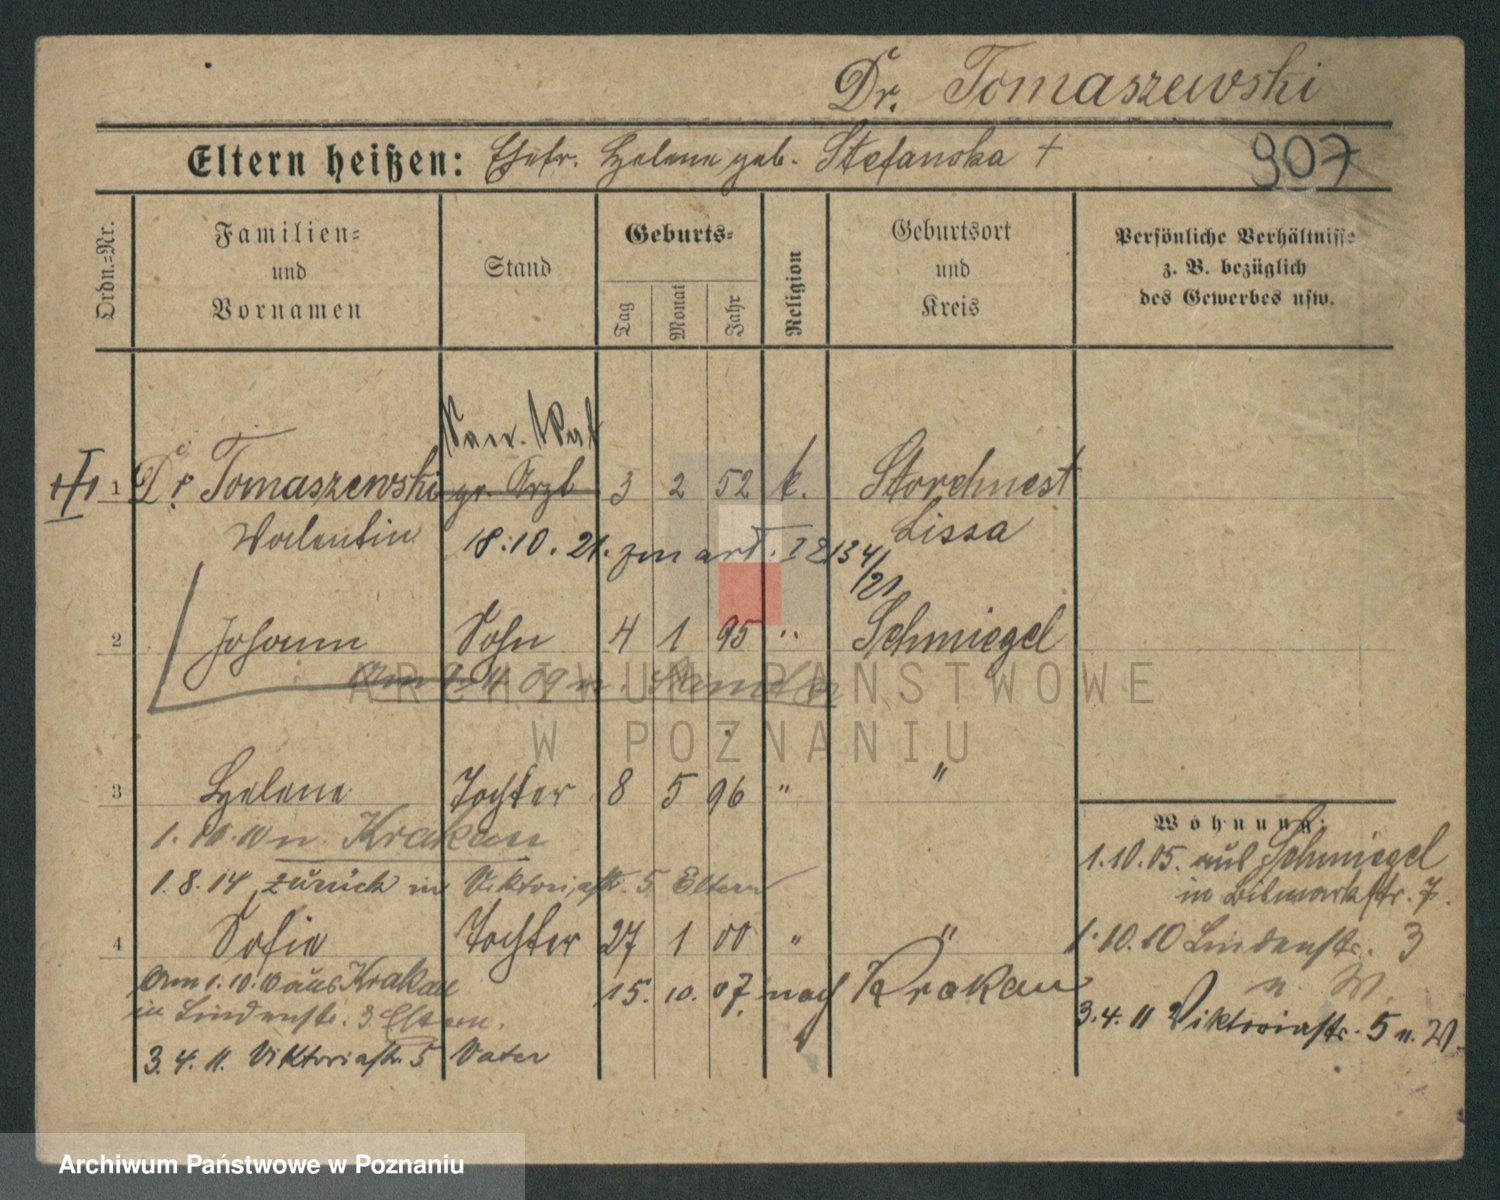 Dr. Tomaszewski
Eltern heißen: Ehefr. Helene geb. Stefanska +
907
Ordn.=Nr.
Familien=
und
Vornamen
Stand
Geburts=
Tag
Monat
Jahr
Religion
Geburtsort
und
Kreis
Persönliche Verhältnisse
z. B. bezüglich
des Gewerbes usw.
San. Rat
1 Dr. Tomaszewski pr. Arzt 3 2 52 k. Storchnest
Valentin Lissa
18.10.21. zur
2 Johann Sohn 4 1 95 " Schmiegel
09 n.
3 Helene Tochter 8 5 96 " "
1.10.10 n. Krakau
1.8.14 zurück in Viktoriastr. 5 Eltern
4 Sofie Tochter 27 1 00 " "
15. 10. 07. nach Krakau
Am 1.10.10 aus Krakau
in Lindenstr. 3 Eltern.
3.4.11. Viktoriastr. 5 Vater
Wohnung:
1.10.05. aus Schmiegel
in Bismarckstr. 7.
1.10.10 Lindenstr. 3
n. W.
3.4.11 Viktoriastr. 5 n. W.
ARCHIWUM PAŃSTWOWE
W POZNANIU
Archiwum Państwowe w Poznaniu